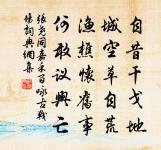 自昔干戈地
城空草自荒
漁樵懷舊事
何敢議興亡
張堯同嘉禾百咏古戰
場詞興網集